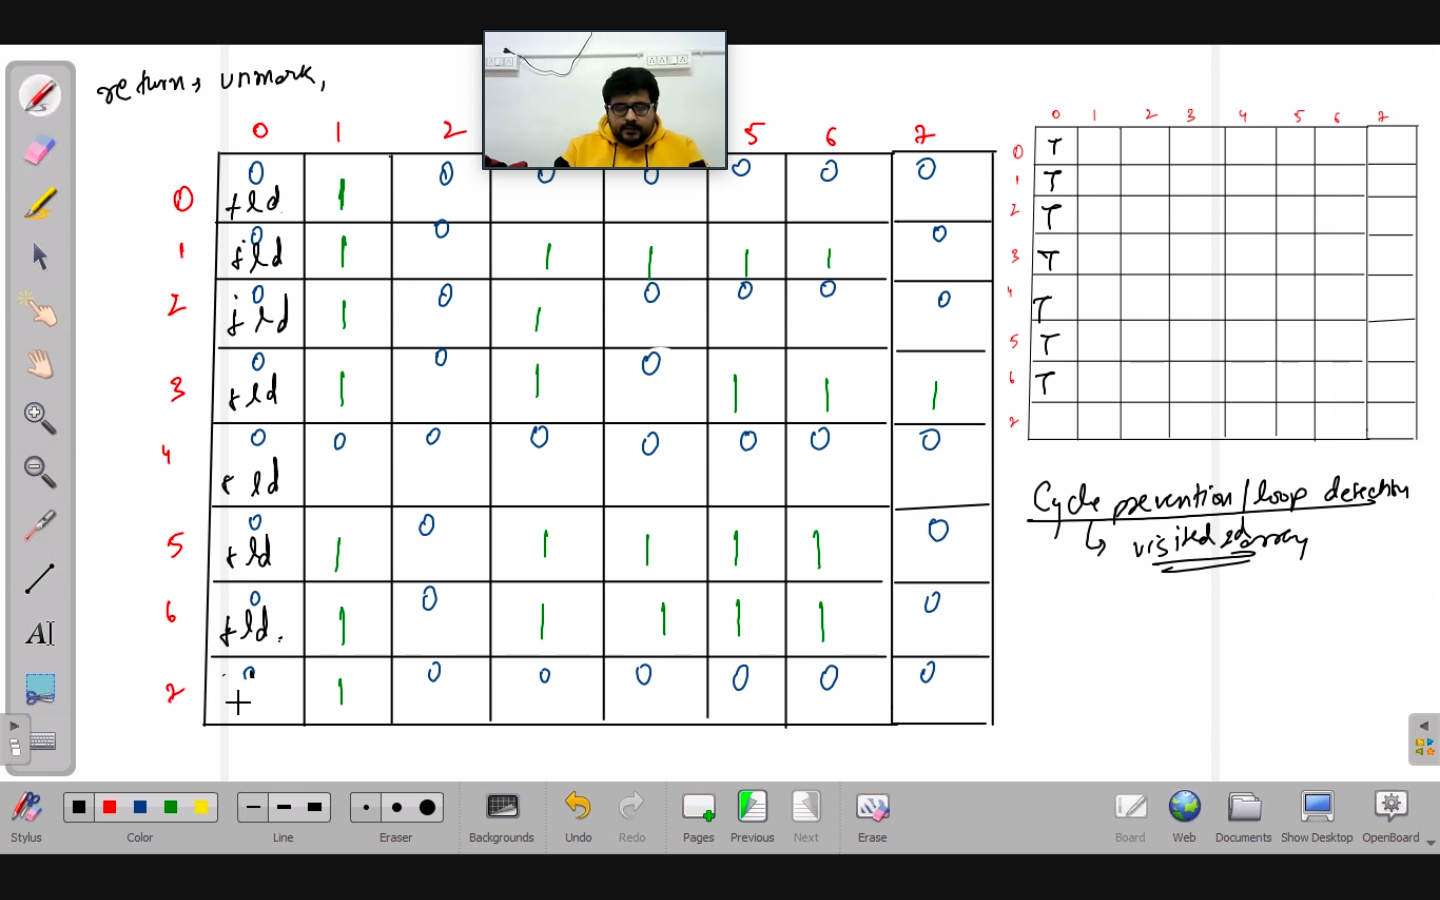 return, unmark,
0 1 2 5 6 7
0 0 1 0 0 0 0 0 0
tld
1 0 1 0 1 1 1 1 0
tld
2 0 1 0 1 0 0 0 0
tld
3 0 1 0 1 0 1 1 1
tld
4 0 0 0 0 0 0 0 0
tld
5 0 1 0 1 1 1 1 0
tld
6 0 1 0 1 1 1 1 0
tld.
7 0 1 0 0 0 0 0 0
0 1 2 3 4 5 6 7
0 T
1 T
2 T
3 T
4 T
5 T
6 T
7
Cycle prevention/loop detection
visited array
AI
Stylus
Color
Line
Eraser
Backgrounds
Undo
Redo
Pages
Previous
Next
Erase
Board
Web
Documents
Show Desktop
OpenBoard